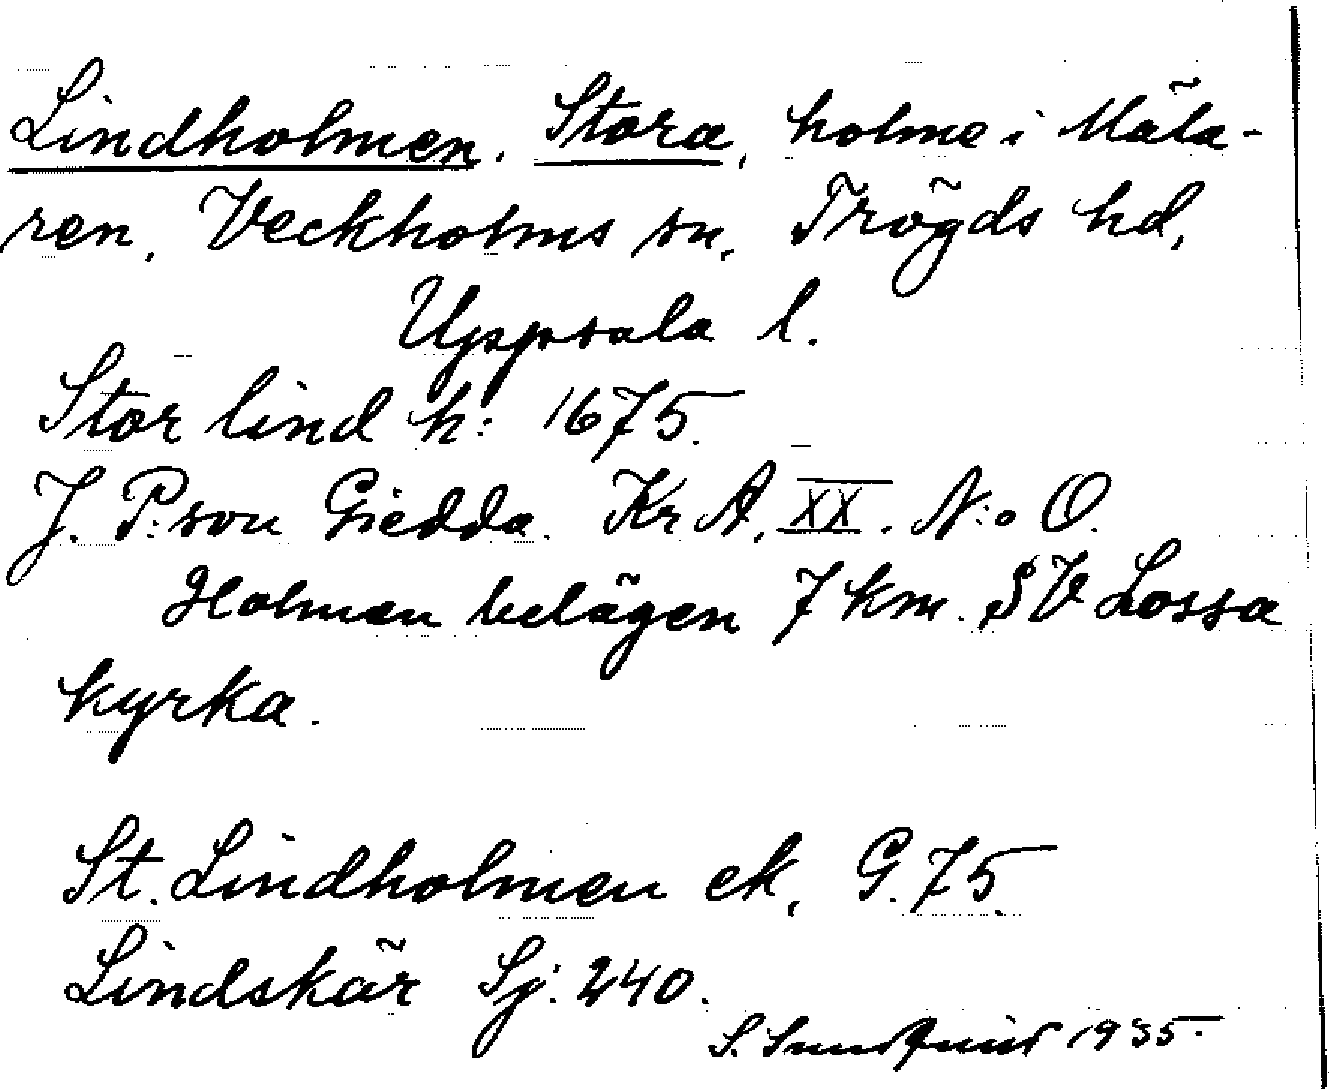 Lindholmen, Stora, holme i Mäla-
ren, Veckholms sn, Trögds hd,
Uppsala l.
Stor lind h: 1675.
J. P:son Giedda. Kr A, XX. N:o O.
Holmen belägen 7 km. SV Lossa
kyrka.
St. Lindholmen ek, G. 75.
Lindskär Sj. 240.
S. Sundquist 1935.